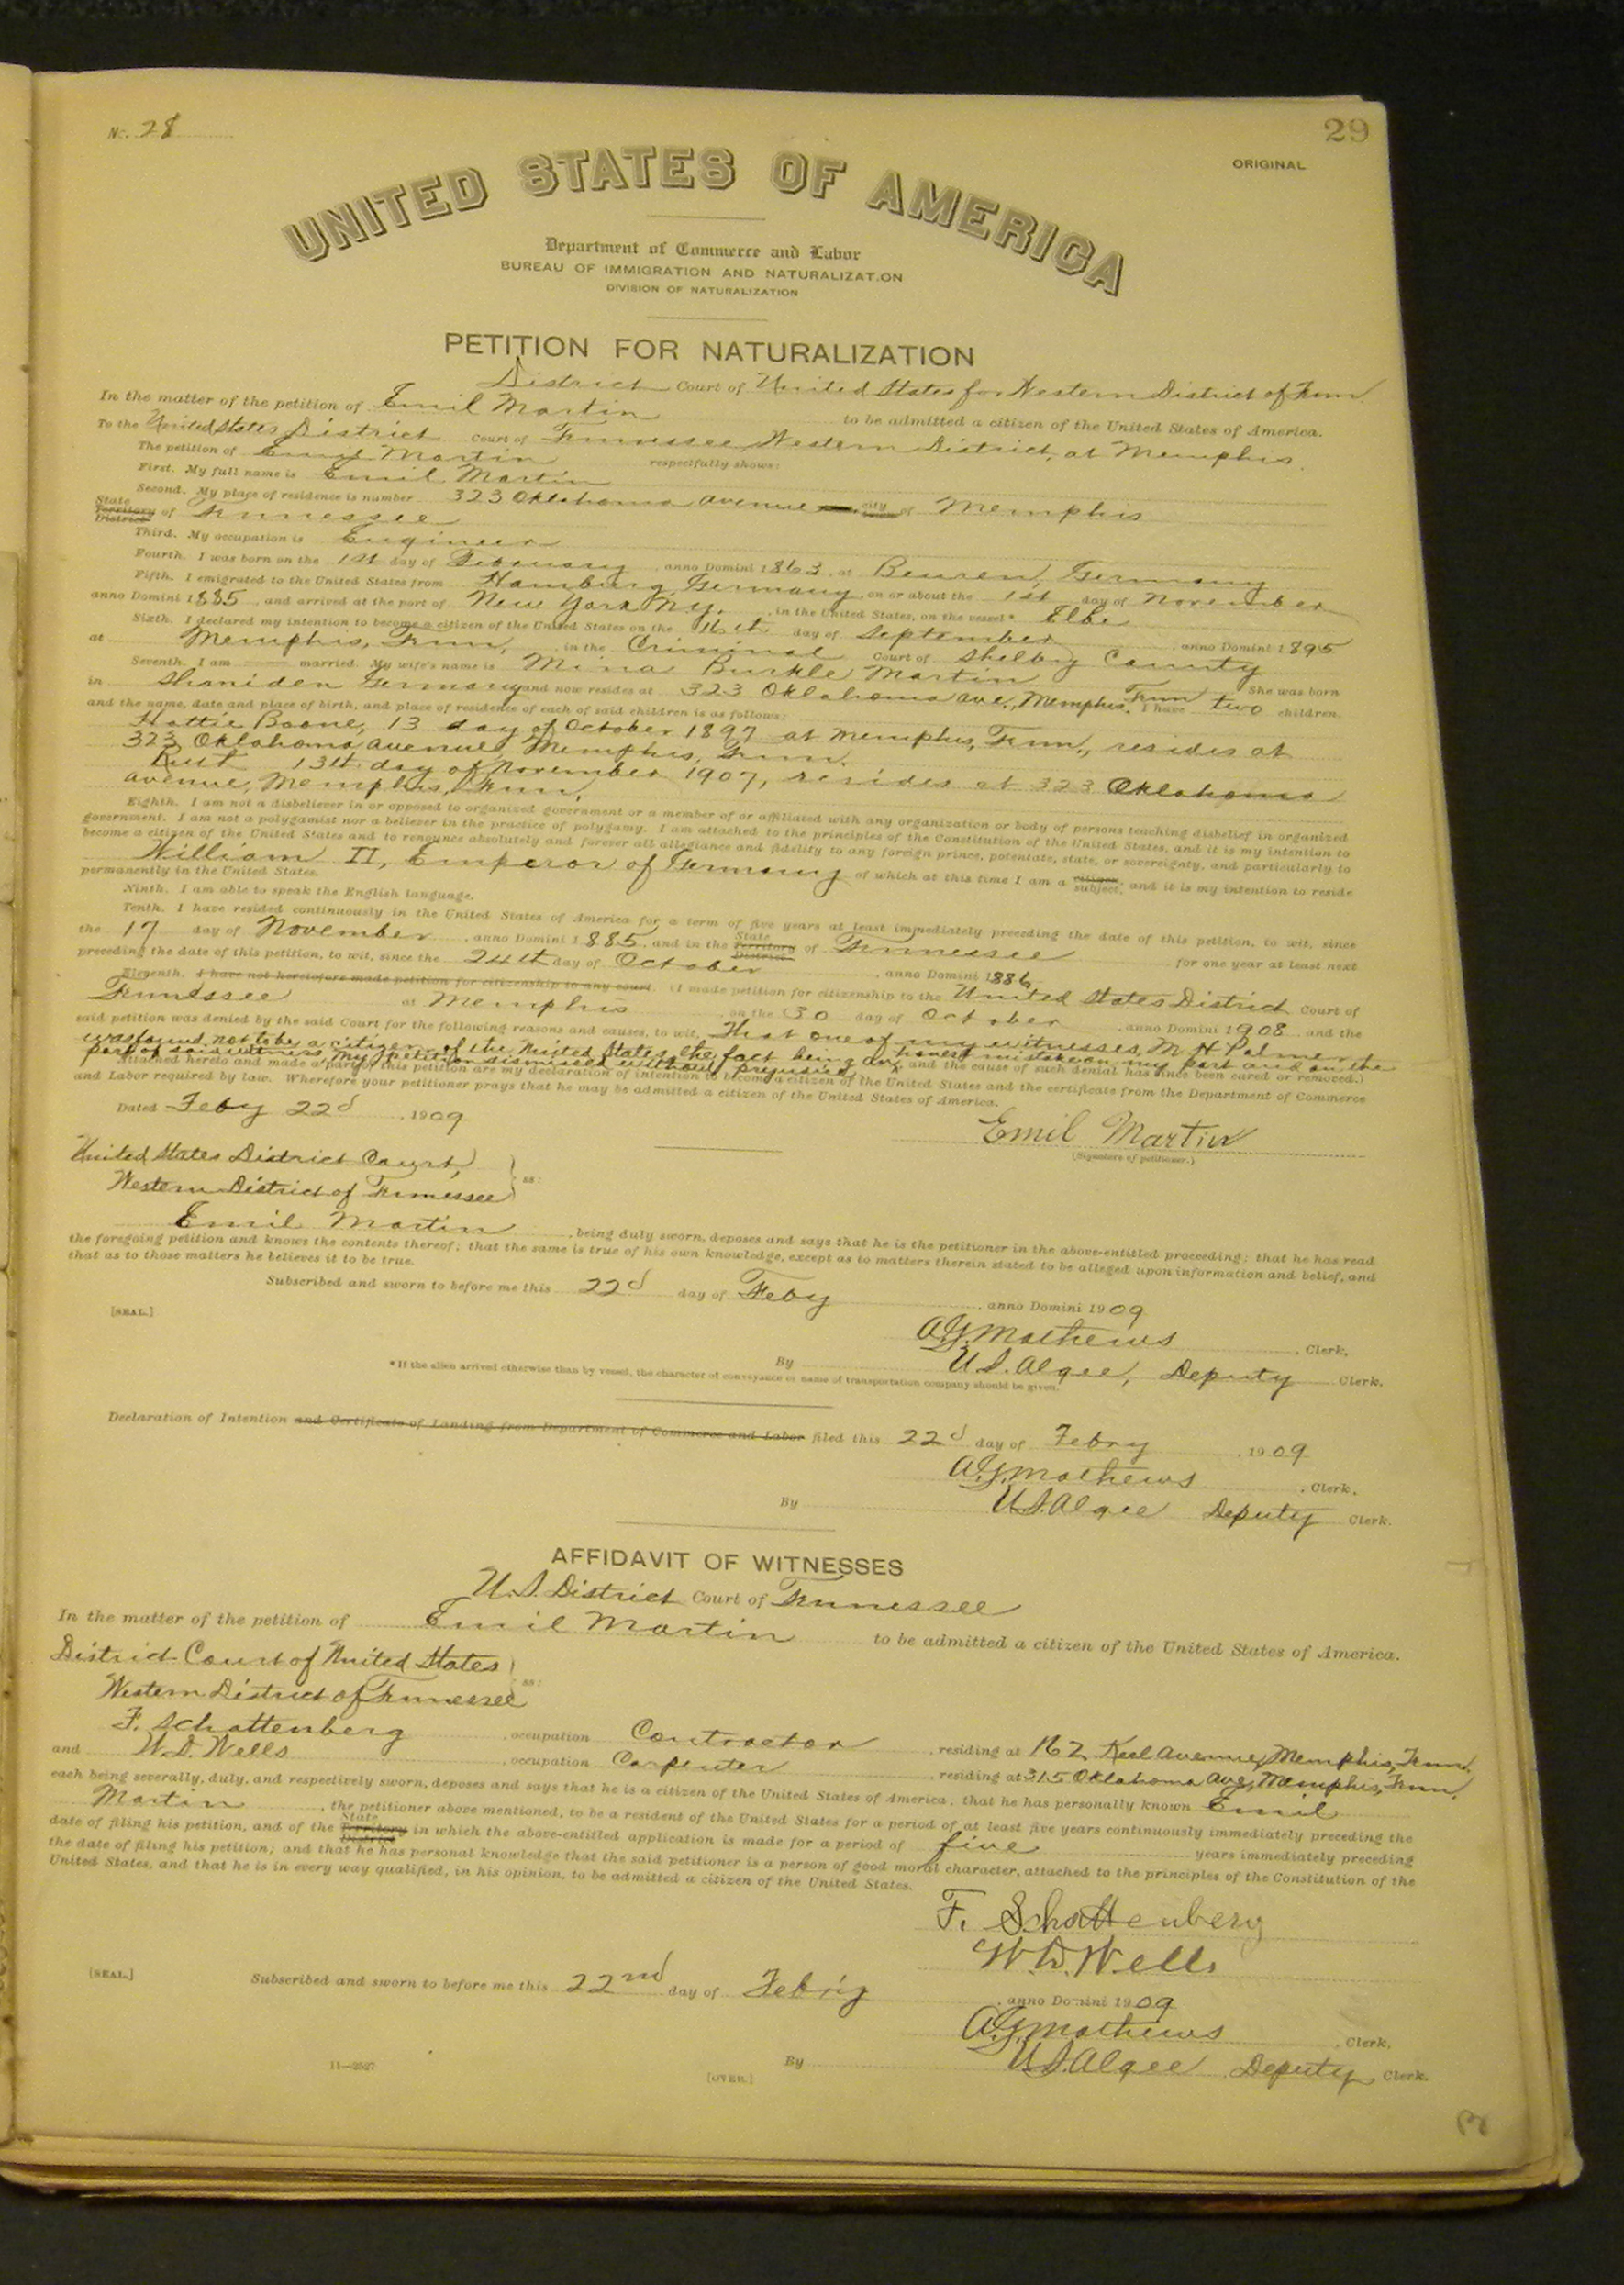 No. 28
29
ORIGINAL
UNITED STATES OF AMERICA
Department of Commerce and Labor
BUREAU OF IMMIGRATION AND NATURALIZATION
DIVISION OF NATURALIZATION
PETITION FOR NATURALIZATION
District Court of United States for Western District of Tenn.
In the matter of the petition of Emil Martin to be admitted a citizen of the United States of America.
To the United States District Court of Tennessee, Western District, at Memphis.
The petition of Emil Martin respectfully shows:
First. My full name is Emil Martin
Second. My place of residence is number 323 Oklahoma Avenue city of Memphis
State Territory District of Tennessee
Third. My occupation is Engineer
Fourth. I was born on the 1st day of February, anno Domini 1863, at Beuren, Germany
Fifth. I emigrated to the United States from Hamburg, Germany, on or about the 1st day of November
anno Domini 1885, and arrived at the port of New York, N.Y., in the United States, on the vessel* Elbe
Sixth. I declared my intention to become a citizen of the United States on the 16th day of September, anno Domini 1895
at Memphis, Tenn, in the Criminal Court of Shelby County
Seventh. I am married. My wife's name is Mina Burkle Martin She was born
in Germany and now resides at 323 Oklahoma Ave., Memphis, Tenn I have two children,
and the name, date and place of birth, and place of residence of each of said children is as follows:
Hattie Boone, 13 day of October 1897 at Memphis, Tenn., resides at
323 Oklahoma Avenue, Memphis, Tenn.
13th day of November 1907, resides at 323 Oklahoma
Avenue, Memphis, Tenn,
Eighth. I am not a disbeliever in or opposed to organized government or a member of or affiliated with any organization or body of persons teaching disbelief in organized
government. I am not a polygamist nor a believer in the practice of polygamy. I am attached to the principles of the Constitution of the United States, and it is my intention to
become a citizen of the United States and to renounce absolutely and forever all allegiance and fidelity to any foreign prince, potentate, state, or sovereignty, and particularly to
William II, Emperor of Germany of which at this time I am a citizen subject, and it is my intention to reside
permanently in the United States.
Ninth. I am able to speak the English language.
Tenth. I have resided continuously in the United States of America for a term of five years at least immediately preceding the date of this petition, to wit, since
the 17 day of November, anno Domini 1885, and in the State Territory District of Tennessee for one year at least next
preceding the date of this petition, to wit, since the 24th day of October, anno Domini 1886,
Eleventh. I have not heretofore made petition for citizenship to any court. (I made petition for citizenship to the United States District Court of
Tennessee at Memphis, on the 30 day of October, anno Domini 1908 and the
said petition was denied by the said Court for the following reasons and causes, to wit, That one of my witnesses, M H Palmer
was found not to be a citizen of the United States, the fact being an honest mistake on my part and on the
part of said witness, my petition dismissed without prejudice, and the cause of such denial has since been cured or removed.)
Attached hereto and made a part of this petition are my declaration of intention to become a citizen of the United States and the certificate from the Department of Commerce
and Labor required by law. Wherefore your petitioner prays that he may be admitted a citizen of the United States of America.
Dated Feby 22d, 1909
Emil Martin
(Signature of petitioner.)
United States District Court,
Western District of Tennessee ss:
Emil Martin, being duly sworn, deposes and says that he is the petitioner in the above-entitled proceeding; that he has read
the foregoing petition and knows the contents thereof; that the same is true of his own knowledge, except as to matters therein stated to be alleged upon information and belief, and
that as to those matters he believes it to be true.
Subscribed and sworn to before me this 22d day of Feby, anno Domini 1909
[SEAL.]
Mathews, Clerk,
By U.S. Algee, Deputy Clerk.
*If the alien arrived otherwise than by vessel, the character of conveyance or name of transportation company should be given.
Declaration of Intention and Certificate of Landing from Department of Commerce and Labor filed this 22d day of Febry, 1909
Mathews, Clerk,
By U.S. Algee Deputy Clerk.
AFFIDAVIT OF WITNESSES
U.S. District Court of Tennessee
In the matter of the petition of Emil Martin to be admitted a citizen of the United States of America.
District Court of United States
Western District of Tennessee ss:
F. Schattenberg, occupation Contractor, residing at 162 Keel Avenue, Memphis, Tenn,
and W.D. Wells, occupation Carpenter, residing at 315 Oklahoma Ave, Memphis, Tenn,
each being severally, duly, and respectively sworn, deposes and says that he is a citizen of the United States of America; that he has personally known Emil
Martin, the petitioner above mentioned, to be a resident of the United States for a period of at least five years continuously immediately preceding the
date of filing his petition, and of the State Territory District in which the above-entitled application is made for a period of five years immediately preceding
the date of filing his petition; and that he has personal knowledge that the said petitioner is a person of good moral character, attached to the principles of the Constitution of the
United States, and that he is in every way qualified, in his opinion, to be admitted a citizen of the United States.
F. Schattenberg
W.D. Wells
[SEAL.]
Subscribed and sworn to before me this 22nd day of Feb'y, anno Domini 1909
Mathews, Clerk,
By U.S. Algee Deputy Clerk.
11—2527
[OVER.]